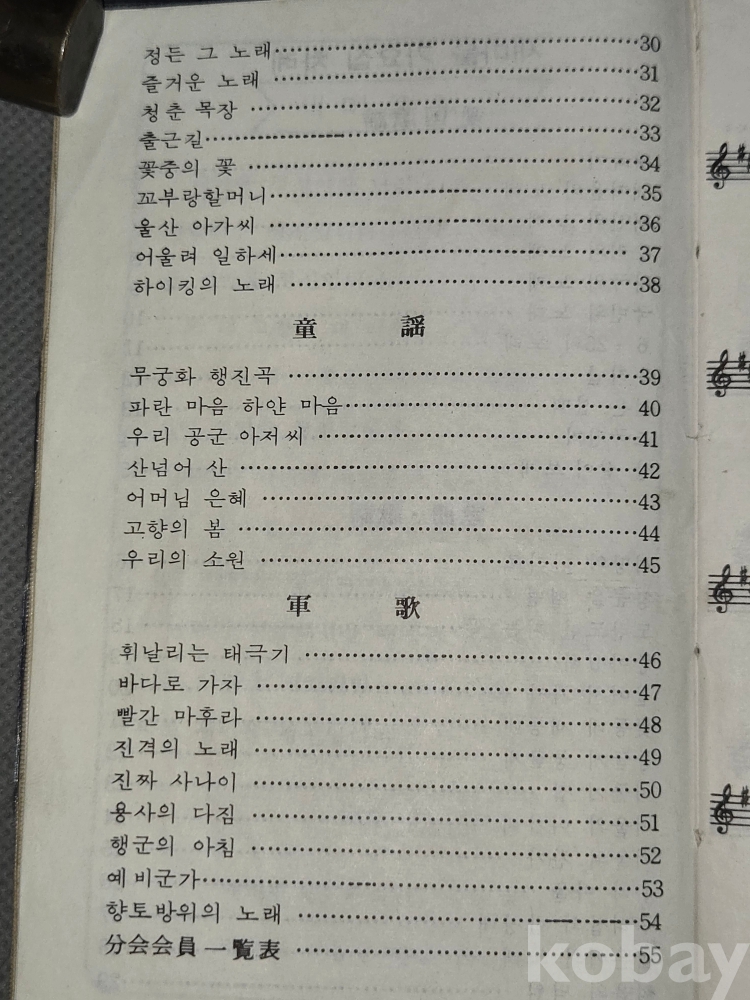 정든 그 노래……………………30
즐거운 노래……………………31
청춘 목장……………………32
출근길……………………33
꽃중의 꽃……………………34
꼬부랑할머니……………………35
울산 아가씨……………………36
어울려 일하세……………………37
하이킹의 노래……………………38
童 謠
무궁화 행진곡……………………39
파란 마음 하얀 마음……………………40
우리 공군 아저씨……………………41
산넘어 산……………………42
어머님 은혜……………………43
고향의 봄……………………44
우리의 소원……………………45
軍 歌
휘날리는 태극기……………………46
바다로 가자……………………47
빨간 마후라……………………48
진격의 노래……………………49
진짜 사나이……………………50
용사의 다짐……………………51
행군의 아침……………………52
예비군가……………………53
향토방위의 노래……………………54
分会会員一覧表……………………55
kobay